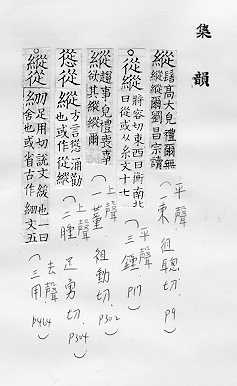 集韻
縱髻高大皃禮爾無
縱縱爾劉昌宗讀
(平聲一東,徂聰切. P9)
○從縱將容切東西曰衡南北
曰從或从糸文十七
(平聲三鍾 P17)
縱趨事皃禮喪事
欲其縱縱爾
(上聲一董 祖動切 P302)
慫從方言慫涌勸
也或作從縱
(上聲二腫 足勇切. P304)
○縱從
足用切說文緩也一曰
舍也或省古作 文五
(去聲三用. P464)